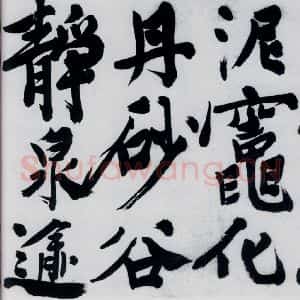 泥竈化
丹砂谷
靜泉逾
Shufawang.CN